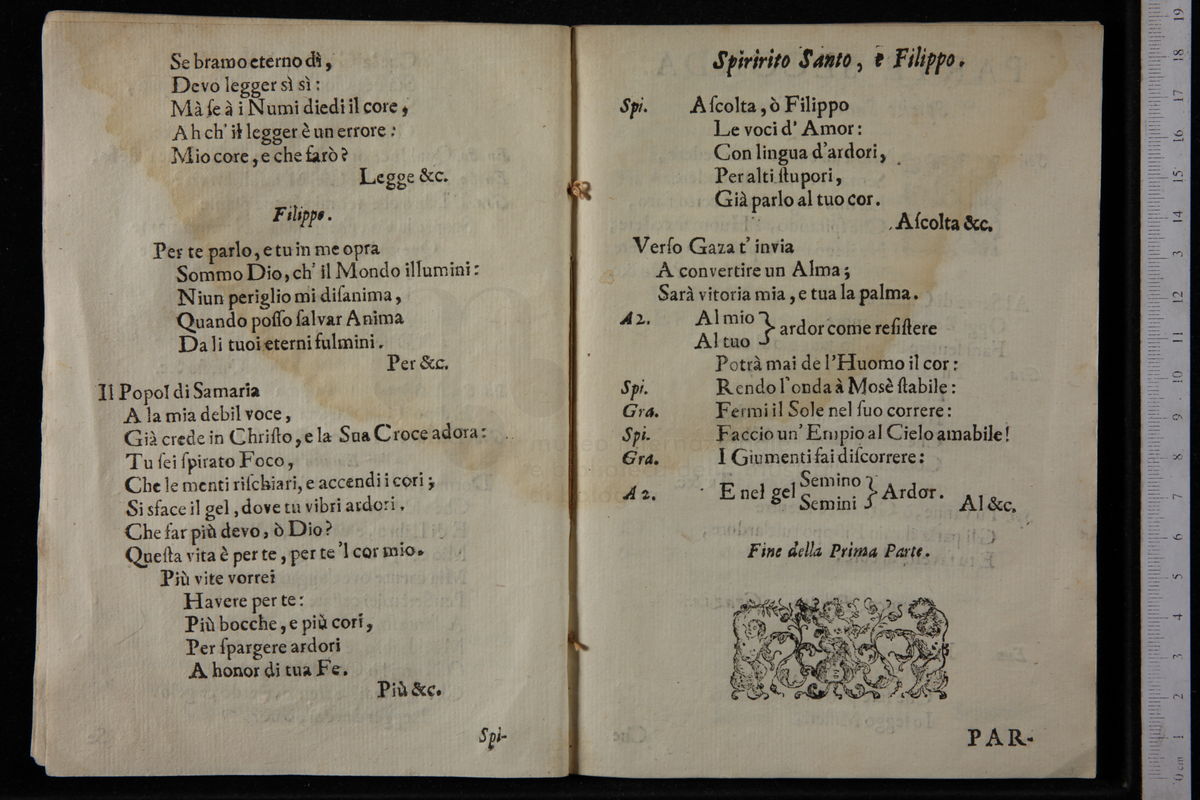 Se bramo eterno dì,
Devo legger sì sì:
Mà ſe à i Numi diedi il core,
Ah ch' il legger è un errore:
Mio core, e che farò?
Legge &c.
Filippo.
Per te parlo, e tu in me opra
Sommo Dio, ch' il Mondo illumini:
Niun periglio mi diſanima,
Quando poſſo ſalvar Anima
Da li tuoi eterni fulmini.
Per &c.
Il Popol di Samaria
A la mia debil voce,
Già crede in Chriſto, e la Sua Croce adora:
Tu ſei ſpirato Foco,
Che le menti riſchiari, e accendi i cori;
Si sface il gel, dove tu vibri ardori.
Che far più devo, ò Dio?
Queſta vita è per te, per te 'l cor mio.
Più vite vorrei
Havere per te:
Più bocche, e più cori,
Per ſpargere ardori
A honor di tua Fe.
Più &c.
Spi-
Spiririto Santo, e Filippo.
Spi. Aſcolta, ò Filippo
Le voci d' Amor:
Con lingua d'ardori,
Per alti ſtupori,
Già parlo al tuo cor.
Aſcolta &c.
Verſo Gaza t' invia
A convertire un Alma;
Sarà vitoria mia, e tua la palma.
A 2. Al mio } ardor come reſiſtere
Al tuo
Potrà mai de l'Huomo il cor:
Spi. Rendo l'onda à Mosè ſtabile:
Gra. Fermi il Sole nel ſuo correre:
Spi. Faccio un' Empio al Cielo amabile!
Gra. I Giumenti fai diſcorrere:
A 2. E nel gel Semino } Ardor.
Semini
Al &c.
Fine della Prima Parte.
PAR-